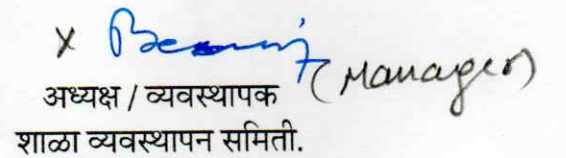 x
(Manager)
अध्यक्ष / व्यवस्थापक
शाळा व्यवस्थापन समिती.